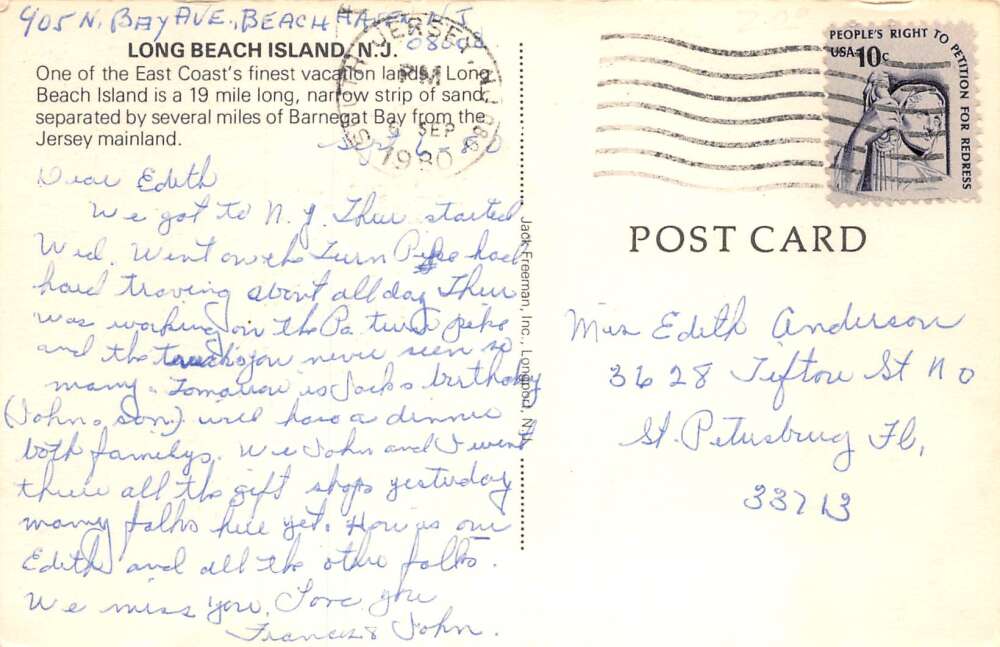 905 N. BAY AVE., BEACH HAVEN N.J.
08008
LONG BEACH ISLAND, N.J.
One of the East Coast's finest vacation lands, Long
Beach Island is a 19 mile long, narrow strip of sand,
separated by several miles of Barnegat Bay from the
Jersey mainland.
JERSEY, N.J. 08
PM
SEP
1980
PEOPLE'S RIGHT TO PETITION FOR REDRESS
USA 10c
Sept 6 80
Dear Edith
We got to N.J. Thur started
Wed. Went on the Turn Pike had
hard traving about all day Thur
was working on the Pa turn pike
and the trucks you never seen so
many. Tomorrow is Jack's birthday
(John's son) will have a dinner
both familys. We John and I went
threw all the gift shops yesterday
many folks here yet. How is our
Edith and all the other folks.
We miss you. Love you
Frances & John.
Jack Freeman, Inc., Longport, N.J.
POST CARD
Miss Edith Anderson
3628 Tifton St No
St. Petersburg Fl,
33713